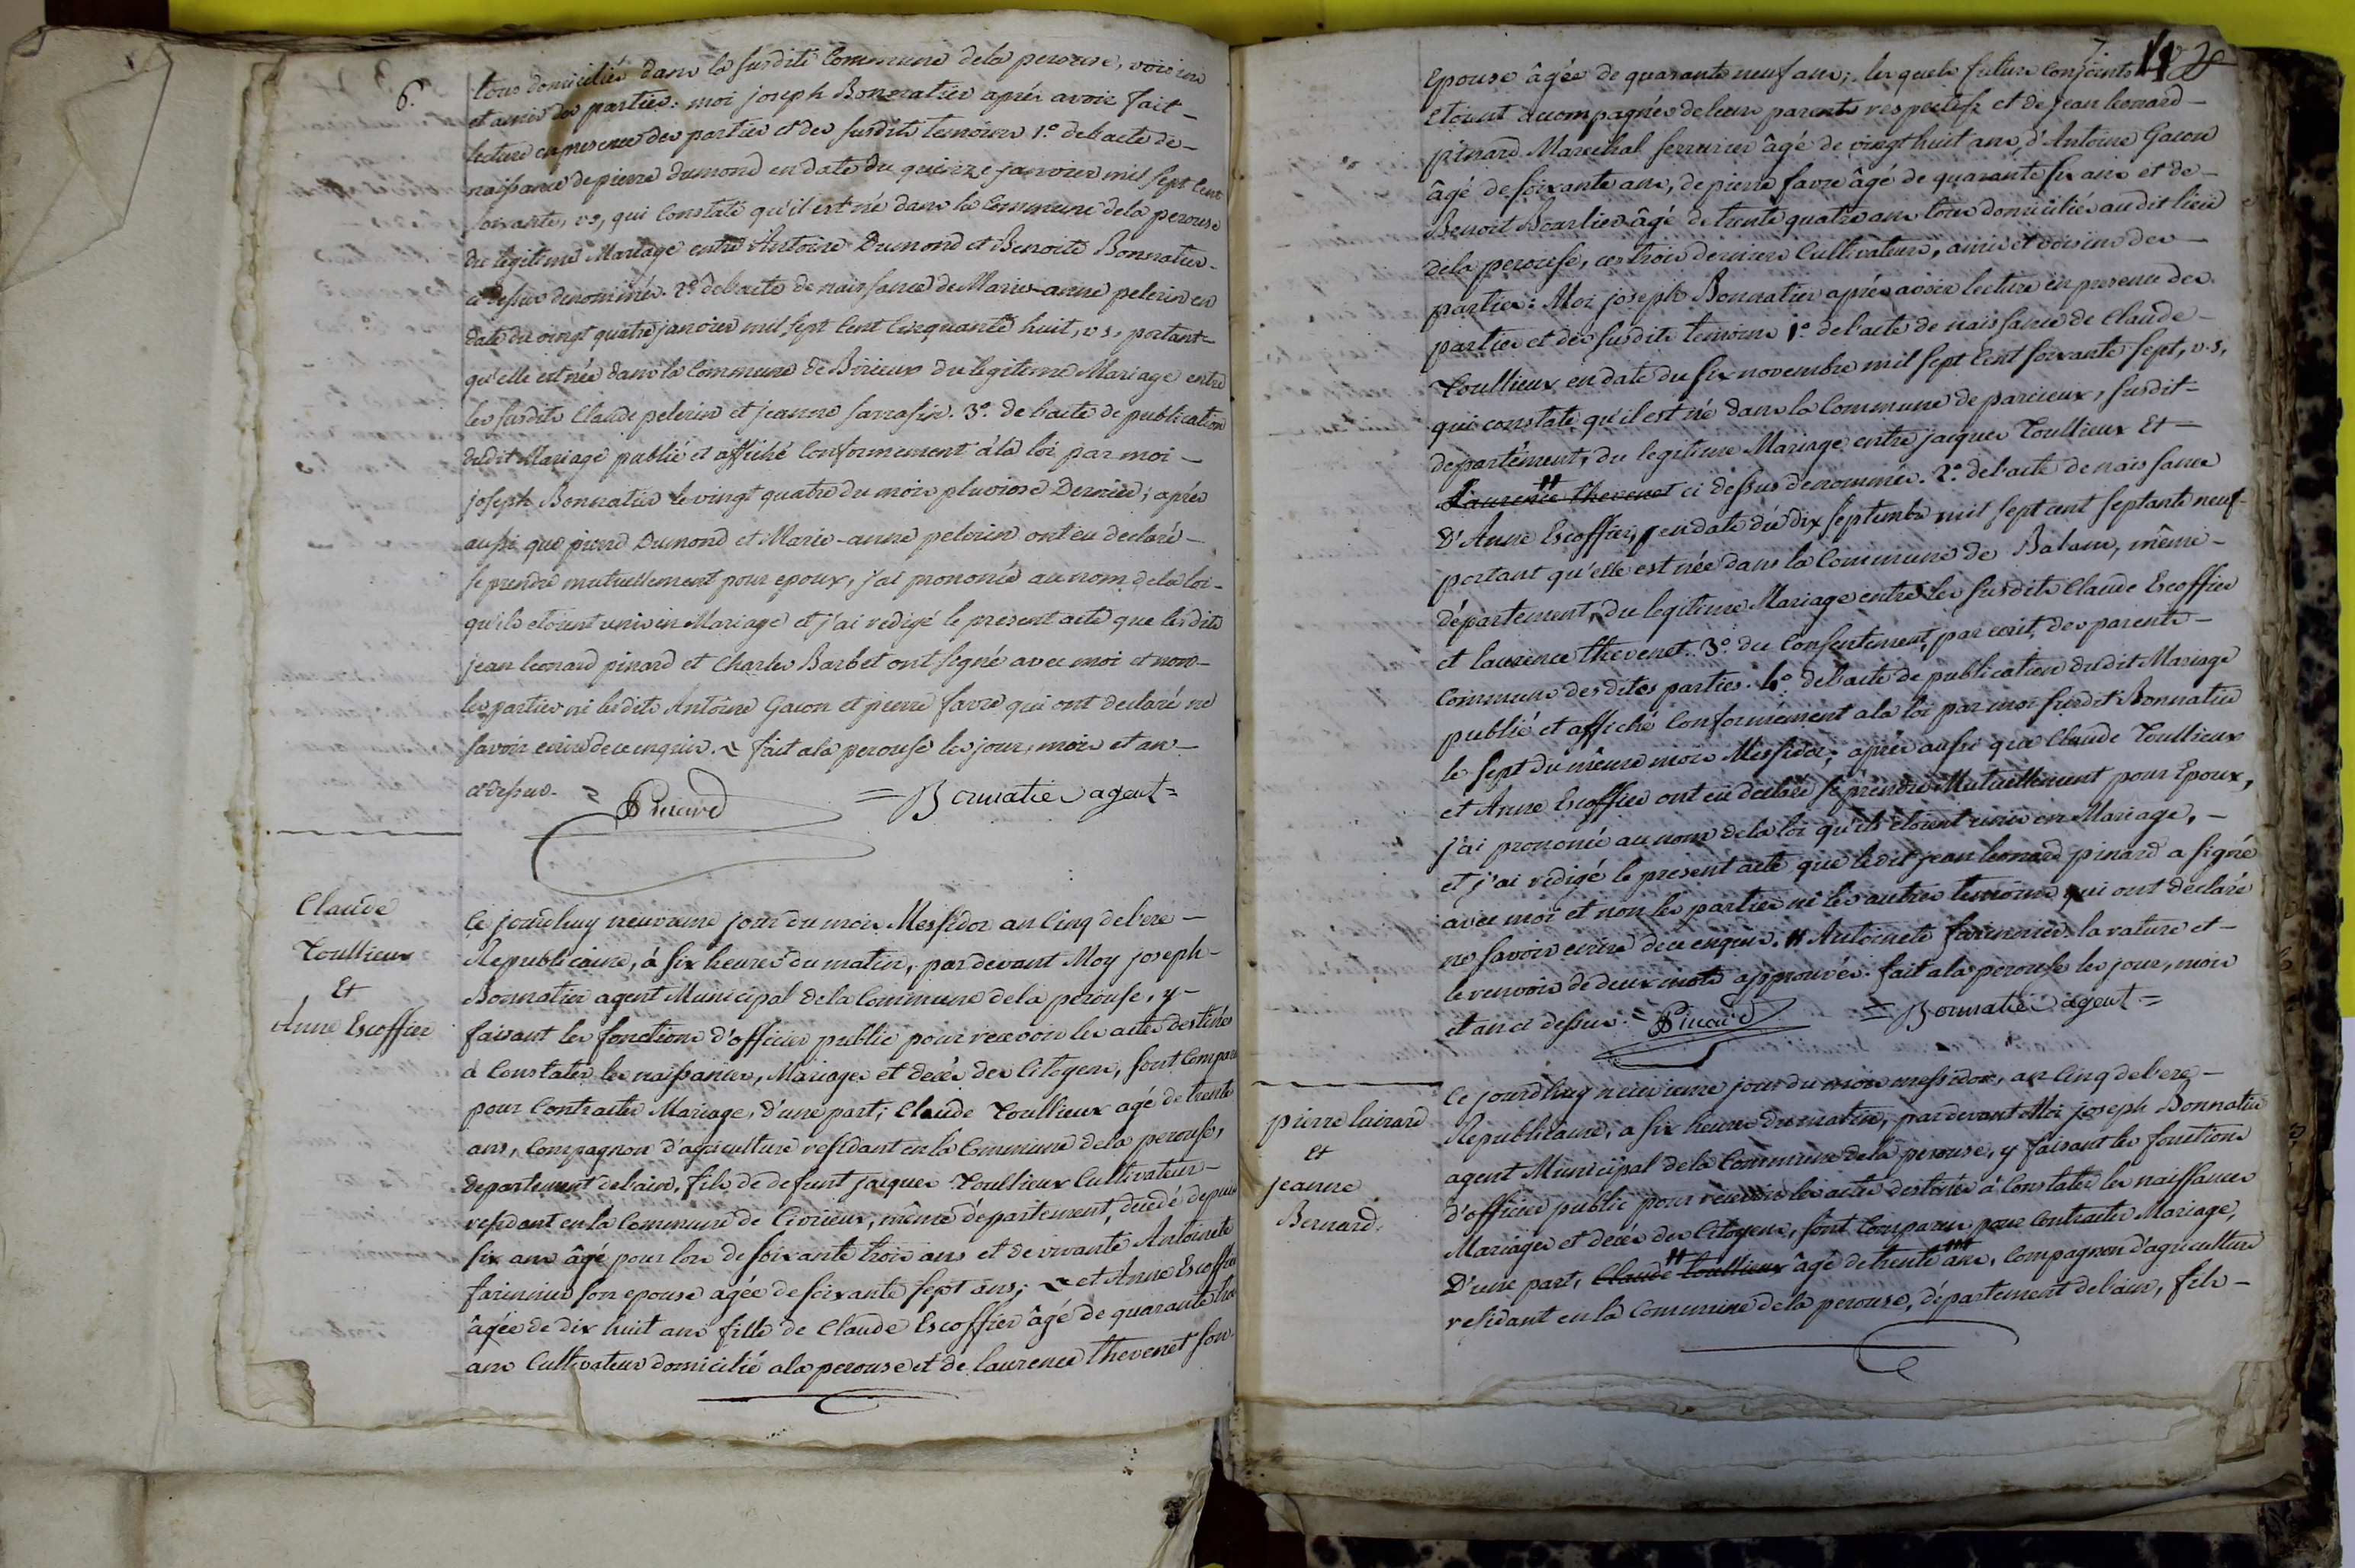 6.
tous domiciliés dans la susdite Commune de la perouse, voisins
et amis des parties: moi joseph Bonnatier aprés avoir fait -
lecture en presence des parties et des susdits temoins 1.° de l'acte de -
naissance de pierre dumond en date du quinze janvier mil sept Cent
soixante, v.s, qui Constate qu'il est né dans la Commune de la perouse
du legitime Mariage entre Antoine Dumond et Benoite Bonnatier -
ci dessus denommés. 2.° de l'acte de naissance de Marie-anne pelerin en
date du vingt quatre janvier mil sept Cent Cinquante huit, v.s, portant=
qu'elle est née dans la Commune de Birieux du legitime Mariage entre
les susdits Claude pelerin et jeanne sarrasin. 3.° de l'acte de publication
dudit Mariage publié et affiché Conformement à la loi par moi -
joseph Bonnatier le vingt quatre du mois pluviose Dernier; aprés
aussi que pierre Dumond et Marie-anne pelerin ont eu declaré -
se prendre mutuellement pour epoux, j'ai prononcé au nom de la loi -
qu'ils etoient unis en Mariage et j'ai redigé le present acte que lesdits
jean leonard pinard et Charles Barbet ont signé avec moi et non -
les parties ni lesdits Antoine Gacon et pierre favre qui ont declaré ne
savoir ecrire de ce enquis. ~ fait a la perouse les jour, mois et an -
ci dessus. = Pinard = Bonnatier agent =
Claude
Toullieux
Et
Anne Escoffier
Ce jourdhuy neuvieme jour du mois Messidor an Cinq de l'ere -
Republicaine, à six heures du matin, par devant Moy joseph -
Bonnatier agent Municipal de la Commune de la perouse, y -
faisant les fonctions d'officier public pour recevoir les actes destinés
à Constater les naissances, Mariages et decés des Citoyens, sont Comparu
pour Contracter Mariage, d'une part; Claude Toullieux agé de trente
ans, Compagnon d'agriculture residant en la Commune de la perouse,
departement de l'ain, fils de defunt jacques Toullieux Cultivateur -
residant en la Commune de Civrieux, même département, decedé depuis
six ans âgé pour lors de soixante trois ans et de vivante Antoinete
farinnier son epouse agée de soixante sept ans; ~ et Anne Escoffier
âgée de dix huit ans fille de Claude Escoffier âgé de quarante trois
ans Cultivateur domicilié a la perouse et de laurence thevenet son
7
11
Epouse âgée de quarante neuf ans; les quels futurs Conjoints
Etoient accompagnés de leurs parents respectifs et de jean leonard -
pinard Marechal serrurier âgé de vingt huit ans, d'Antoine Gacon
âgé de soixante ans, de pierre favre âgé de quarante six ans et de -
Benoit Bourlier âgé de trente quatre ans tous domiciliés au dit lieu
de la perouse, ces trois derniers Cultivateurs, amis et voisins des -
parties: Moi joseph Bonnatier aprés avoir lecture en presence des
parties et des susdits temoins 1.° de l'acte de naissance de Claude -
Toullieux en date du six novembre mil sept Cent soixante sept, v.s,
qui constate qu'il est né dans la Commune de parcieux, susdit=
departément, du legitime Mariage entre jacques Toullieux Et -
Laurence thevenet ci dessus denommés. 2.° de l'acte de naissance
D'Anne Escoffier, en date du dix septembre mil sept cent septante neuf -
portant qu'elle est née dans la Commune de Balan, même -
département, du legitime Mariage entre les susdits Claude Escoffier
et laurence thevenet. 3.° du Consentement, par ecrit, des parents -
Communs desdites parties. 4.° de l'acte de publication dudit Mariage
publié et affiché Conformément a la loi par moi susdit Bonnatier
le sept du même mois Messidor; aprés aussi que Claude Toullieux
et Anne Escoffier ont eu declaré se prendre Mutuellement pour Epoux,
j'ai prononcé au nom de la loi qu'ils etoient unis en Mariage, -
et j'ai redigé le present acte que ledit jean leonard pinard a signé
avec moi et non les parties ni les autres temoins qui ont declaré
ne savoir ecrire de ce enquis. # Antoinete farinnier la rature et -
le renvoie de deux mots approuvés. fait a la perouse les jour, mois
et an ci dessus. = Pinard = Bonnatier agent =
pierre lairard
Et
jeanne
Bernard.
Ce jourdhuy neuvieme jour du mois messidor, an Cinq de l'ere -
Republicaine, a six heures du matin, par devant Moi joseph Bonnatier
agent Municipal de la Commune de la perouse, y faisant les fonctions
d'officier public pour recevoir les actes destinés à Constater les naissances
Mariages et decés des Citoyens, sont Comparus pour Contracter Mariage,
D'une part, Claude toullieux âgé de trente ans, Compagnon d'agriculture
residant en la Commune de la perouse, département de l'ain, fils -